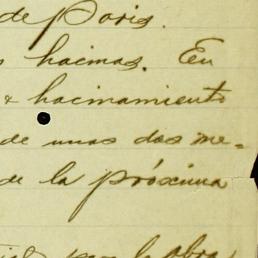 de Paris.
hacinas. En
hacinamiento
de unas dos me-
de la próxima